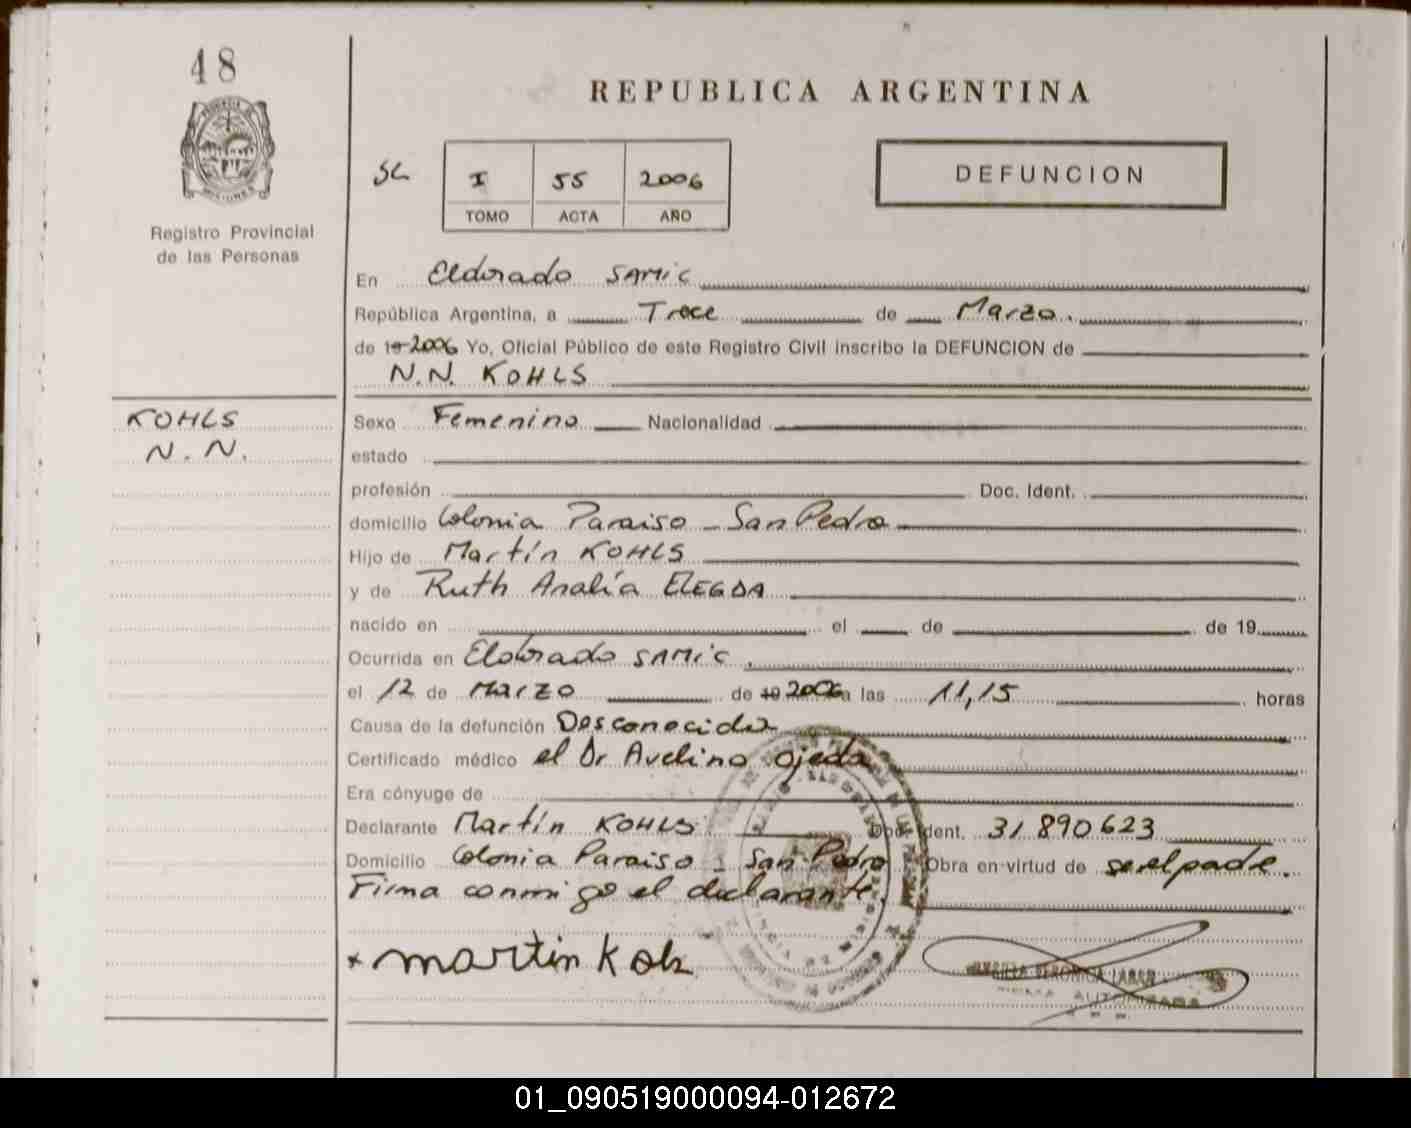 48
REPUBLICA ARGENTINA
SL
I 55 2006
TOMO ACTA AÑO
DEFUNCION
Registro Provincial
de las Personas
En Eldorado SAMIC
República Argentina, a Trece de Marzo.
de 19 2006 Yo, Oficial Público de este Registro Civil inscribo la DEFUNCION de
N.N. KOHLS
KOHLS
N. N.
Sexo Femenino Nacionalidad
estado
profesión Doc. Ident.
domicilio Colonia Paraiso - San Pedro
Hijo de Martín KOHLS
y de Ruth Analía
nacido en el de de 19
Ocurrida en Eldorado SAMIC.
el 12 de Marzo de 19 2006 a las 11,15 horas
Causa de la defunción Desconocida
Certificado médico el Dr Avelino ojeda
Era cónyuge de
Declarante Martín KOHLS Doc. Ident. 31 890 623
Domicilio Colonia Paraiso - San Pedro Obra en virtud de ser el padre.
Firma conmigo el declarante.
x martin
VERONICA
AUTORIZADA
01_090519000094-012672